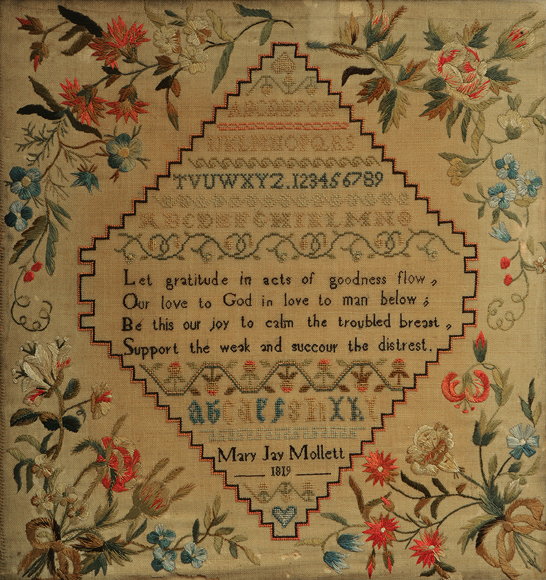 ABCDEFGH
IJKLMNOPQRS
TVUWXYZ.123456789
ABCDEFGHIKLMNO
Let gratitude in acts of goodness flow,
Our love to God in love to man below;
Be this our joy to calm the troubled breast,
Support the weak and succour the distrest.
Mary Jay Mollett
1819